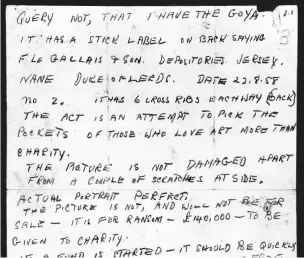 QUERY NOT, THAT I HAVE THE GOYA.
IT HAS A STICK LABEL ON BACK SAYING
F. LE GALLAIS & SON. DEPOSITORIES. JERSEY.
NAME DUKE OF LEEDS. DATE 22.8.58
NO 2. IT HAS 6 CROSS RIBS EACH WAY (BACK)
THE ACT IS AN ATTEMPT TO PICK THE
POCKETS OF THOSE WHO LOVE ART MORE THAN
CHARITY.
THE PICTURE IS NOT DAMAGED APART
FROM A COUPLE OF SCRATCHES AT SIDE.
ACTUAL PORTRAIT PERFECT.
THE PICTURE IS NOT, AND WILL NOT BE FOR
SALE – IT IS FOR RANSOM – £140,000 – TO BE
GIVEN TO CHARITY.
FUND IS STARTED – IT SHOULD BE QUICKLY